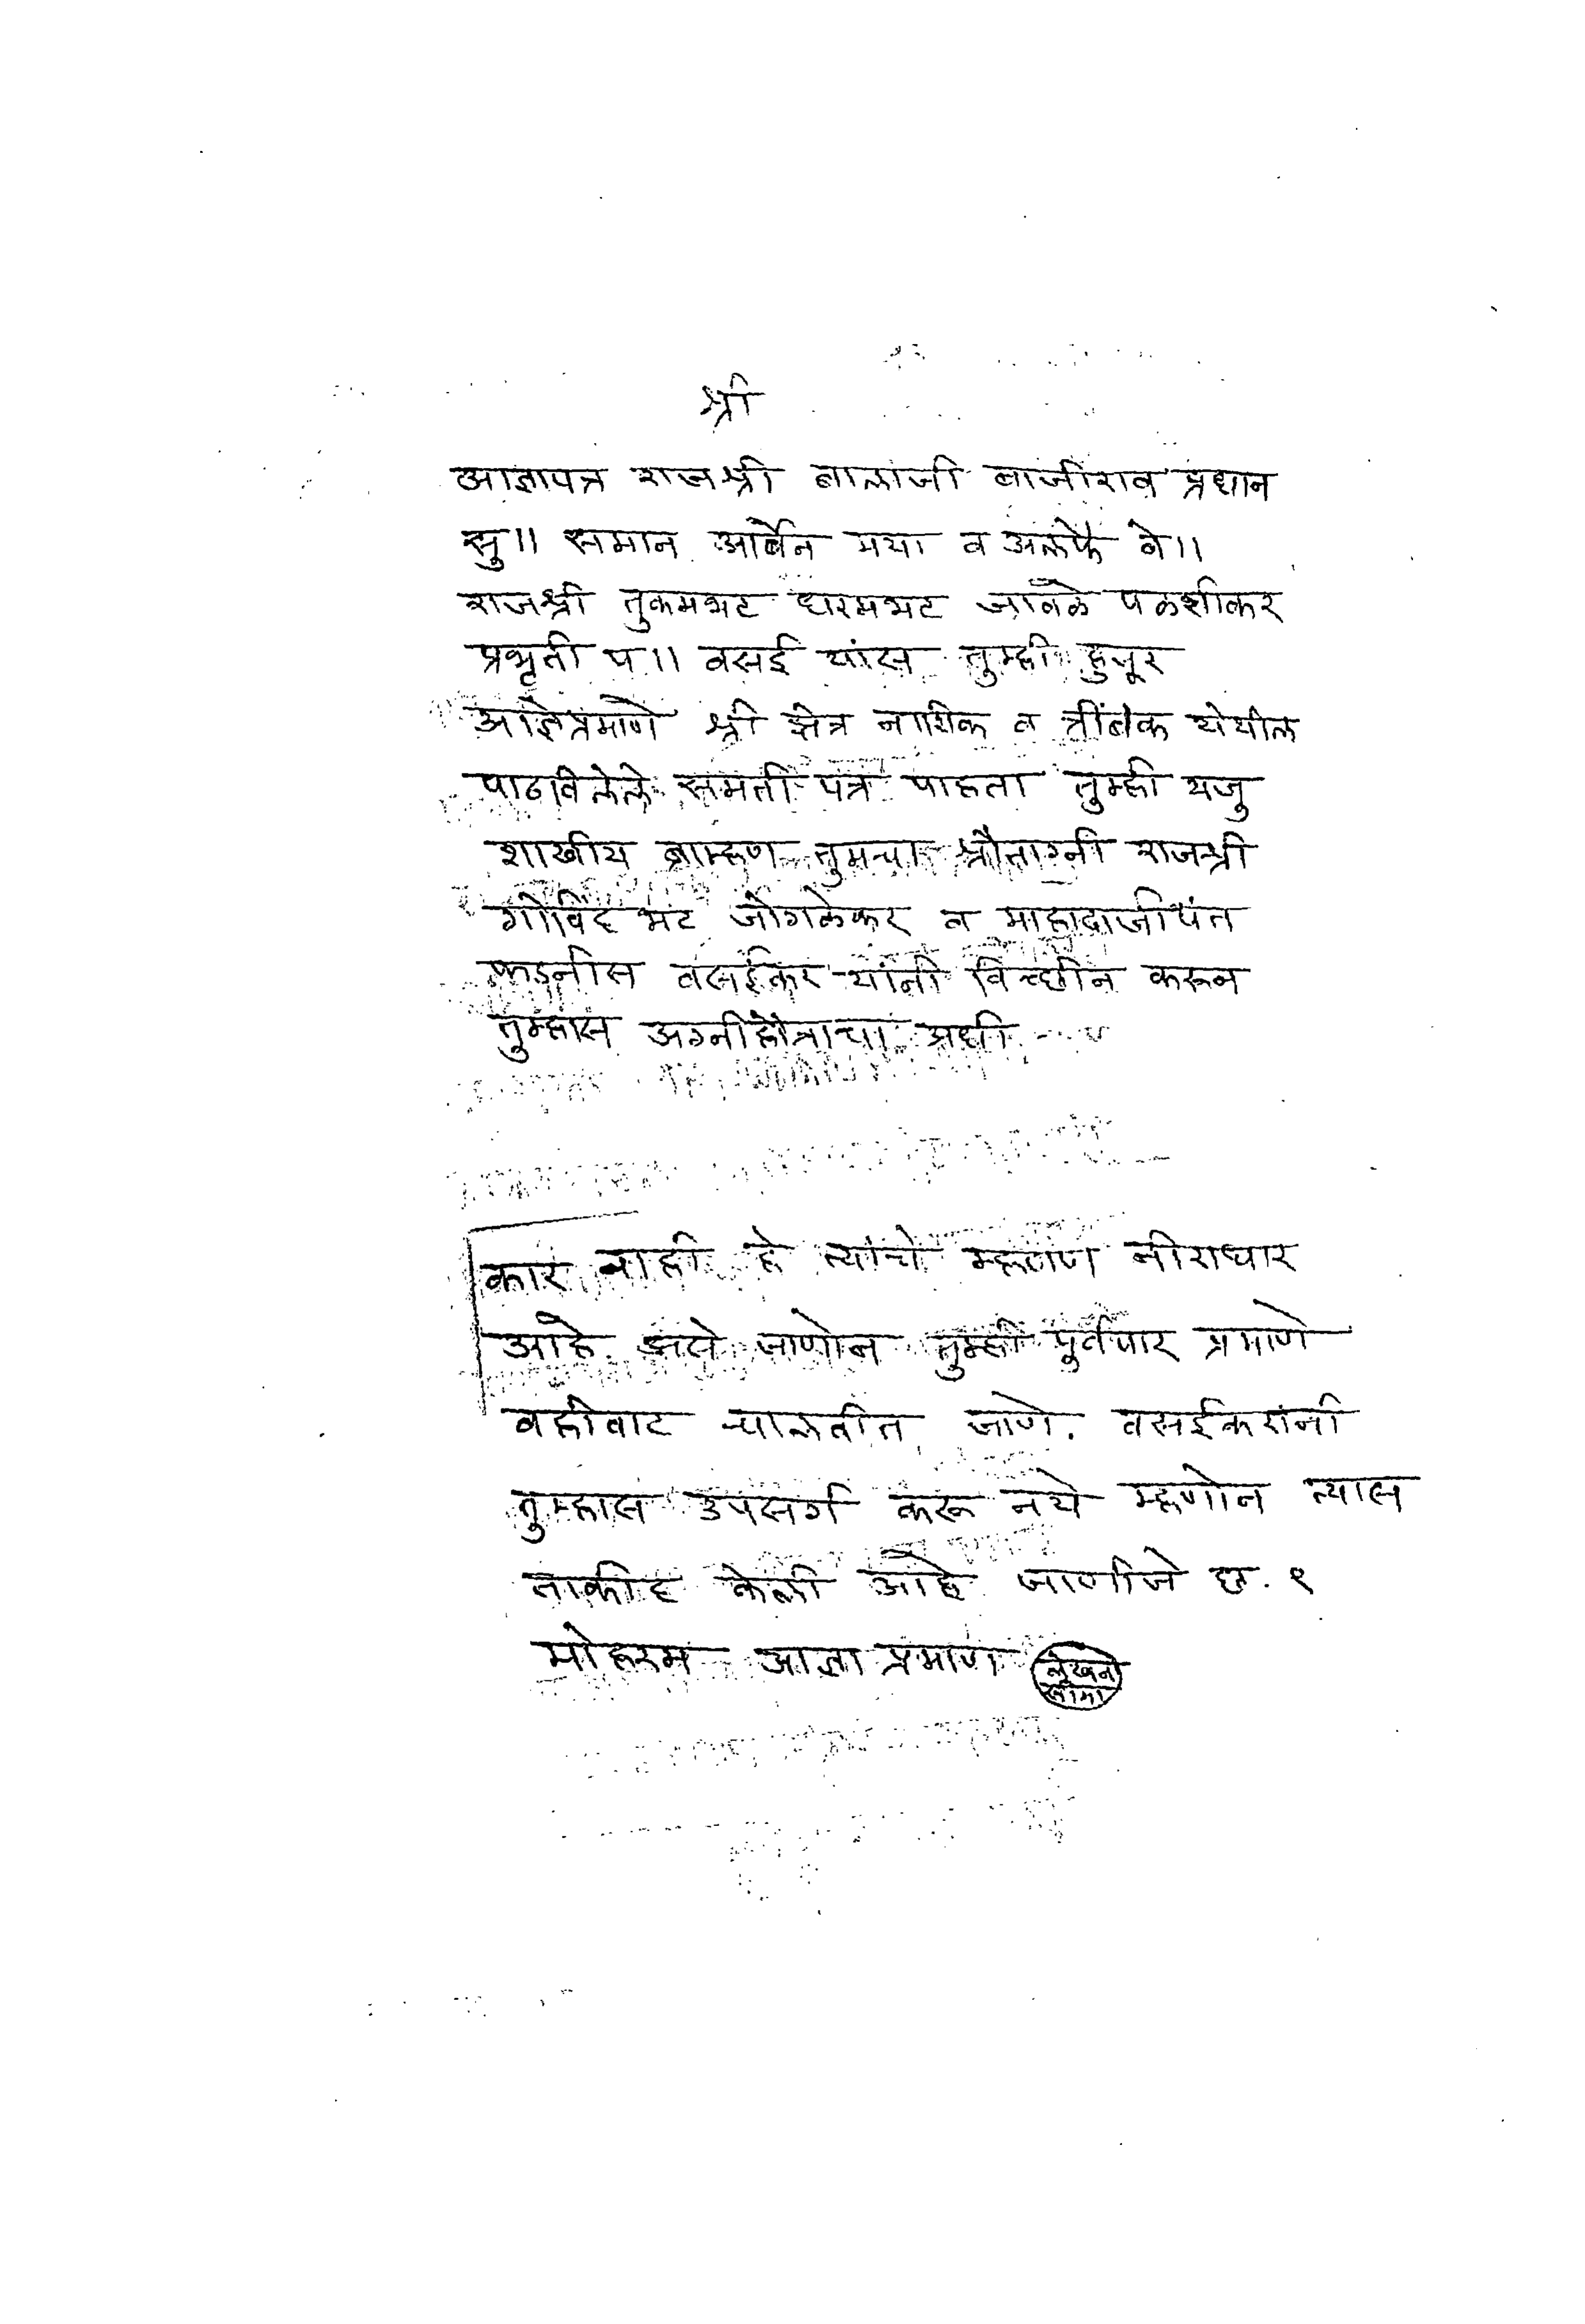 श्री
आज्ञापत्र राजश्री बाळाजी बाजीराव प्रधान
सु॥ समान आर्बैन मया व अलफै बे॥
राजश्री तुकमभट धरमभट जावळे पळशीकर
प्रभृती प॥ वसई यांस तुम्ही हुजूर
आज्ञेप्रमाणे श्री क्षेत्र नाशिक व त्रींबक येथील
पाठविलेले समती पत्र पाहता तुम्ही यजु
शाखीय ब्राम्हण तुमचा श्रौताग्नी राजश्री
गोविंद भट जोगळेकर व माहादाजीपंत
फडनीस वसईकर यांनी विच्छीन करून
तुम्हास अग्नीहोत्राचा अधी
कार नाही हे त्यांचे म्हणणे नीराधार
आहे असे जाणोन तुम्ही पुर्वपार प्रमाणे
वहीवाट चालवीत जाणे. वसईकरांनी
तुम्हास उपसर्ग करू नये म्हणोन त्यास
ताकीद केली आहे जाणीजे छ. १
मोहरम आज्ञा प्रमाण लेखन
सीमा